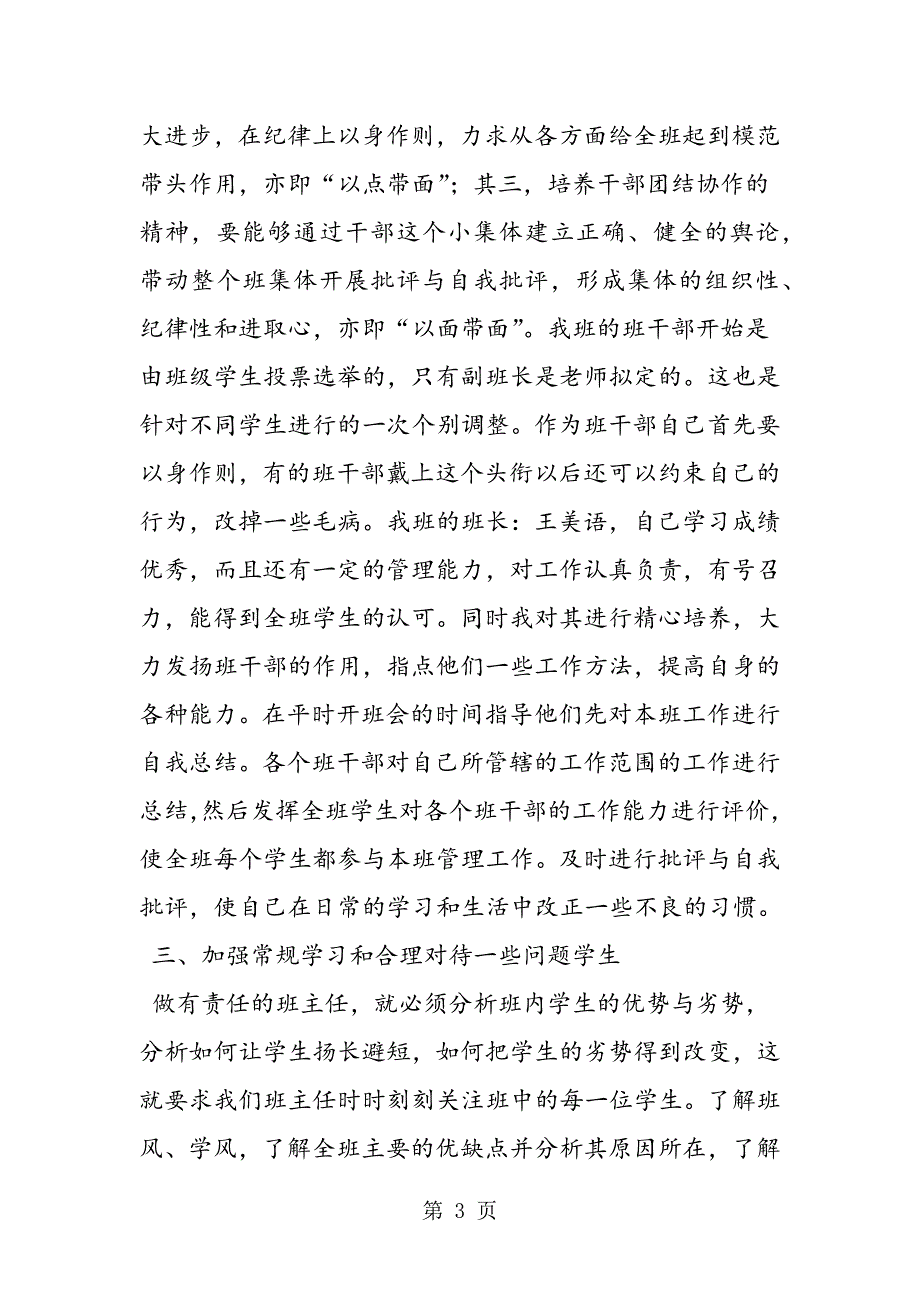 大进步，在纪律上以身作则，力求从各方面给全班起到模范
带头作用，亦即“以点带面”；其三，培养干部团结协作的
精神，要能够通过干部这个小集体建立正确、健全的舆论，
带动整个班集体开展批评与自我批评，形成集体的组织性、
纪律性和进取心，亦即“以面带面”。我班的班干部开始是
由班级学生投票选举的，只有副班长是老师拟定的。这也是
针对不同学生进行的一次个别调整。作为班干部自己首先要
以身作则，有的班干部戴上这个头衔以后还可以约束自己的
行为，改掉一些毛病。我班的班长：王美语，自己学习成绩
优秀，而且还有一定的管理能力，对工作认真负责，有号召
力，能得到全班学生的认可。同时我对其进行精心培养，大
力发扬班干部的作用，指点他们一些工作方法，提高自身的
各种能力。在平时开班会的时间指导他们先对本班工作进行
自我总结。各个班干部对自己所管辖的工作范围的工作进行
总结，然后发挥全班学生对各个班干部的工作能力进行评价，
使全班每个学生都参与本班管理工作。及时进行批评与自我
批评，使自己在日常的学习和生活中改正一些不良的习惯。
三、加强常规学习和合理对待一些问题学生
做有责任的班主任，就必须分析班内学生的优势与劣势，
分析如何让学生扬长避短，如何把学生的劣势得到改变，这
就要求我们班主任时时刻刻关注班中的每一位学生。了解班
风、学风，了解全班主要的优缺点并分析其原因所在，了解
第 3 页